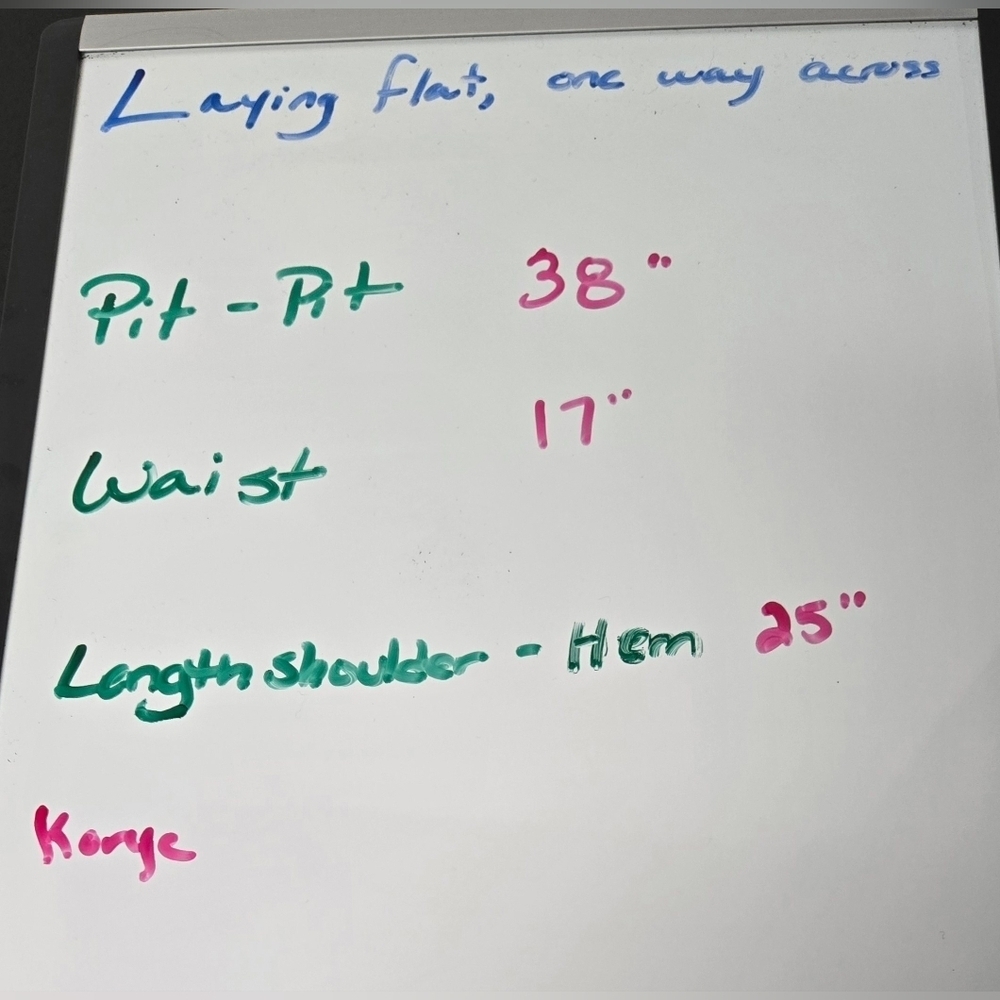 Laying flat, one way across
Pit - Pit 38"
Waist 17"
Length shoulder - Hem 25"